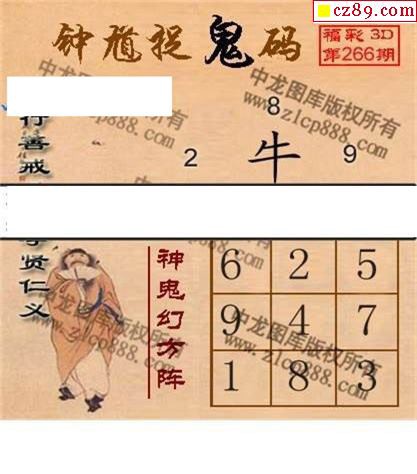 cz89.com
钟馗捉鬼码
福彩 3D
第266期
中龙图库版权所有
www.zlcp888.com
8
2 牛 9
行善戒
贤仁义
神鬼幻方阵
6 2 5
9 4 7
1 8 3
中龙图库版权所有
www.zlcp888.com
中龙图库版权所有
www.zlcp888.com